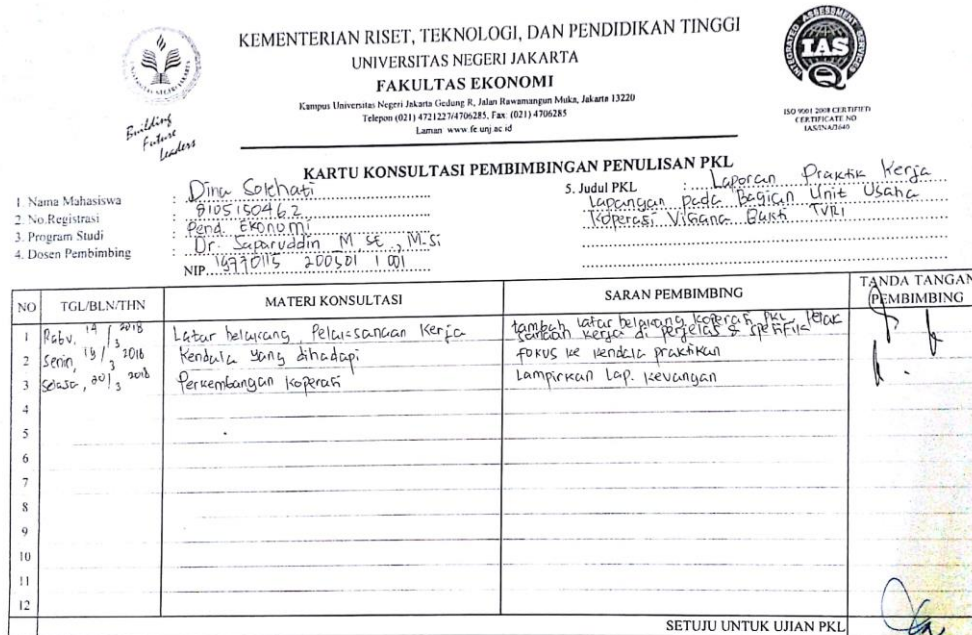 KEMENTERIAN RISET, TEKNOLOGI, DAN PENDIDIKAN TINGGI
UNIVERSITAS NEGERI JAKARTA
FAKULTAS EKONOMI
Kampus Universitas Negeri Jakarta Gedung R, Jalan Rawamangun Muka, Jakarta 13220
Telepon (021) 4721227/4706285, Fax: (021) 4706285
Laman: www.fe.unj.ac.id
Building
Future
Leaders
INTEGRATED ASSESSMENT SERVICES
IAS
ISO 9001 2008 CERTIFIED
CERTIFICATE NO
IAS/INA/1640
KARTU KONSULTASI PEMBIMBINGAN PENULISAN PKL
1. Nama Mahasiswa : Dina Solehati
2. No.Registrasi : 8105150462
3. Program Studi : Pend. Ekonomi
4. Dosen Pembimbing : Dr. Saparuddin M SE., M.Si
NIP. 19770115 200501 1 001
5. Judul PKL : Laporan Praktik Kerja
Lapangan pada Bagian Unit Usaha
Koperasi Bakti TVRI
NO TGL/BLN/THN MATERI KONSULTASI SARAN PEMBIMBING TANDA TANGAN PEMBIMBING
1 Rabu, 14/3 2018 Latar belakang, Pelaksanaan Kerja tambah latar belakang koperasi, PKL, Pelak
sanaan kerja di perjelas & spesifik
2 Senin, 19/3 2018 Kendala yang dihadapi fokus ke kendala praktikan
3 Selasa, 20/3 2018 Perkembangan koperasi Lampirkan Lap. Keuangan
4
5
6
7
8
9
10
11
12
SETUJU UNTUK UJIAN PKL